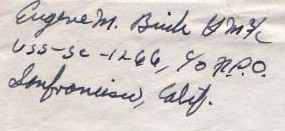 Eugene M. Birch GM 1/c
USS-SC-1266, c/o N.P.O.
Sanfrancisco, Calif.